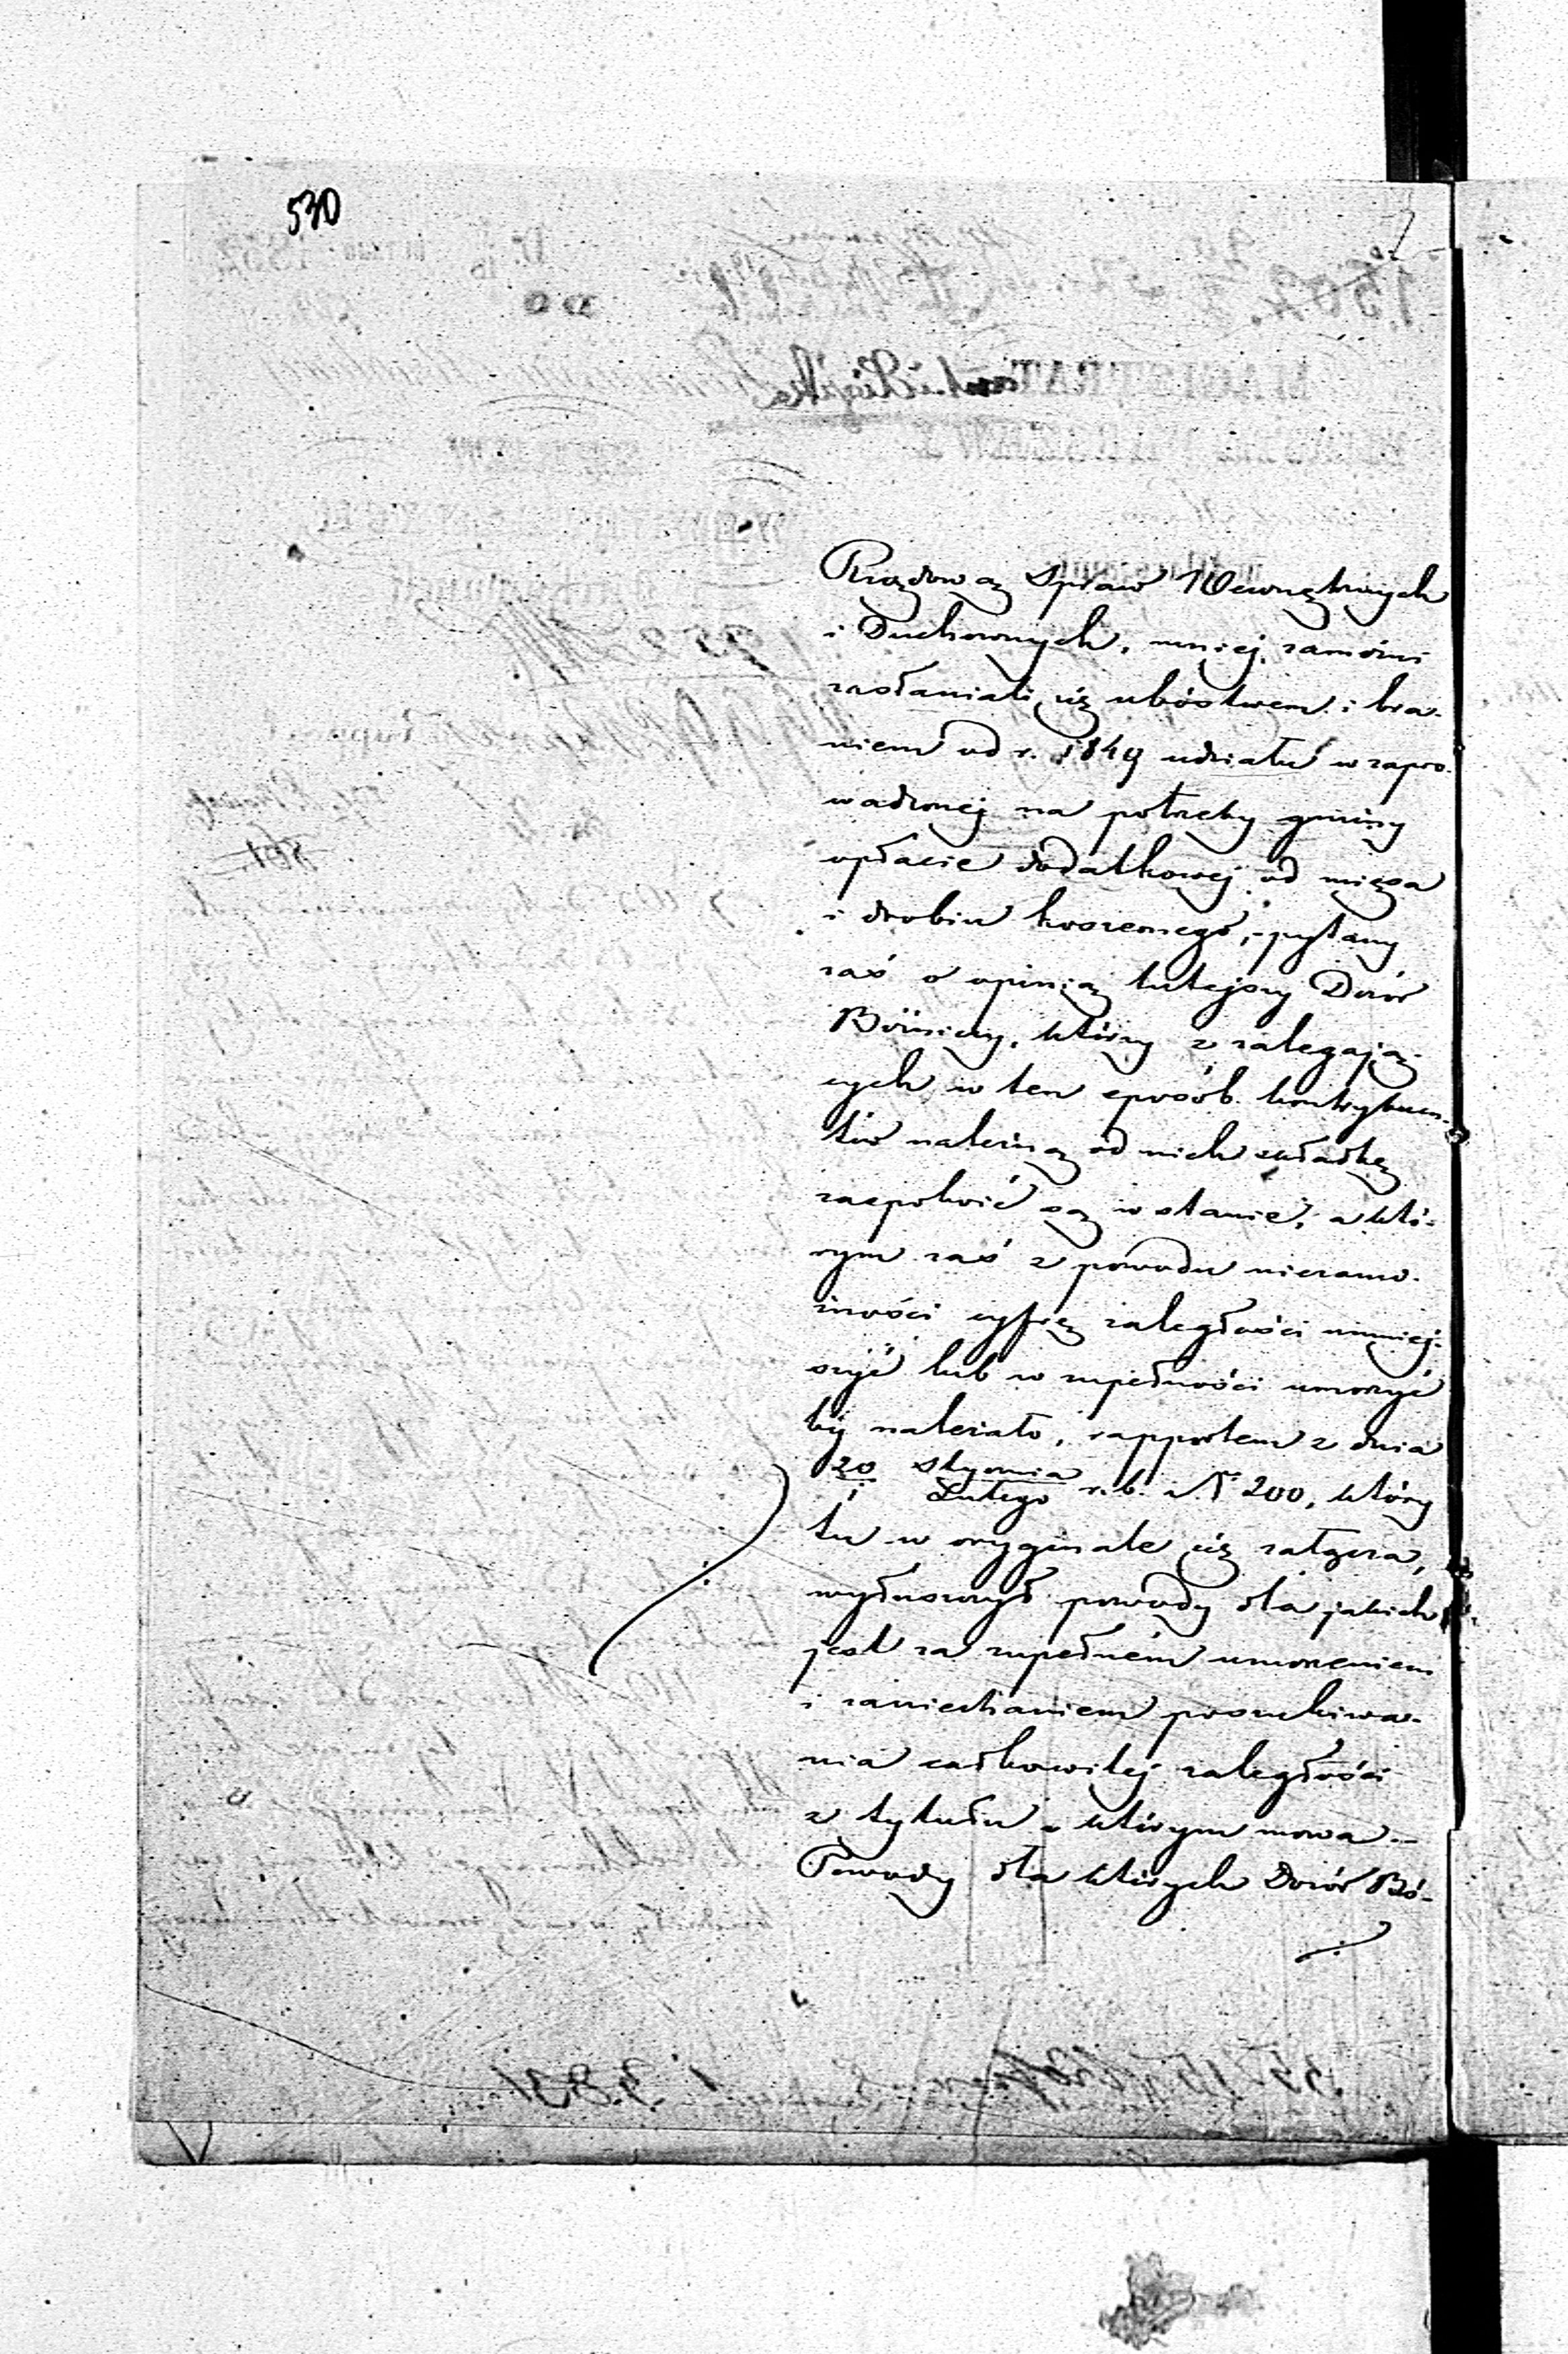 530
Rządową Spraw Wewnętrznych
i Duchownych, mniej zamożni
zasłaniali się ubóstwem i bra-
niem od r. 1849 udziału w zapro-
wadzonej na potrzeby gminy
opłacie dodatkowej od mięsa
i drobiu koszernego, - pytany
zaś o opinią tutejszy Dozór
Bóżniczy, którzy z zalegają-
cych w ten sposób kontrybuen-
tów należną od nich składkę
zaspokoić są w stanie, a któ-
rym zaś z powodu niezamo-
żności cyfrę zaległości zmniej-
szyć lub w zupełności umorzyć
by należało, rapportem z dnia
20 stycznia
1 Lutego r. b. Nr 200, który
tu w oryginale się załącza,
wyłuszczył powody dla jakich
jest za zupełném umorzeniem
i zaniechaniem poszukiwa-
nia całkowitej zaległości
z tytułu o którym mowa. -
Powody dla których Dozór Bó-